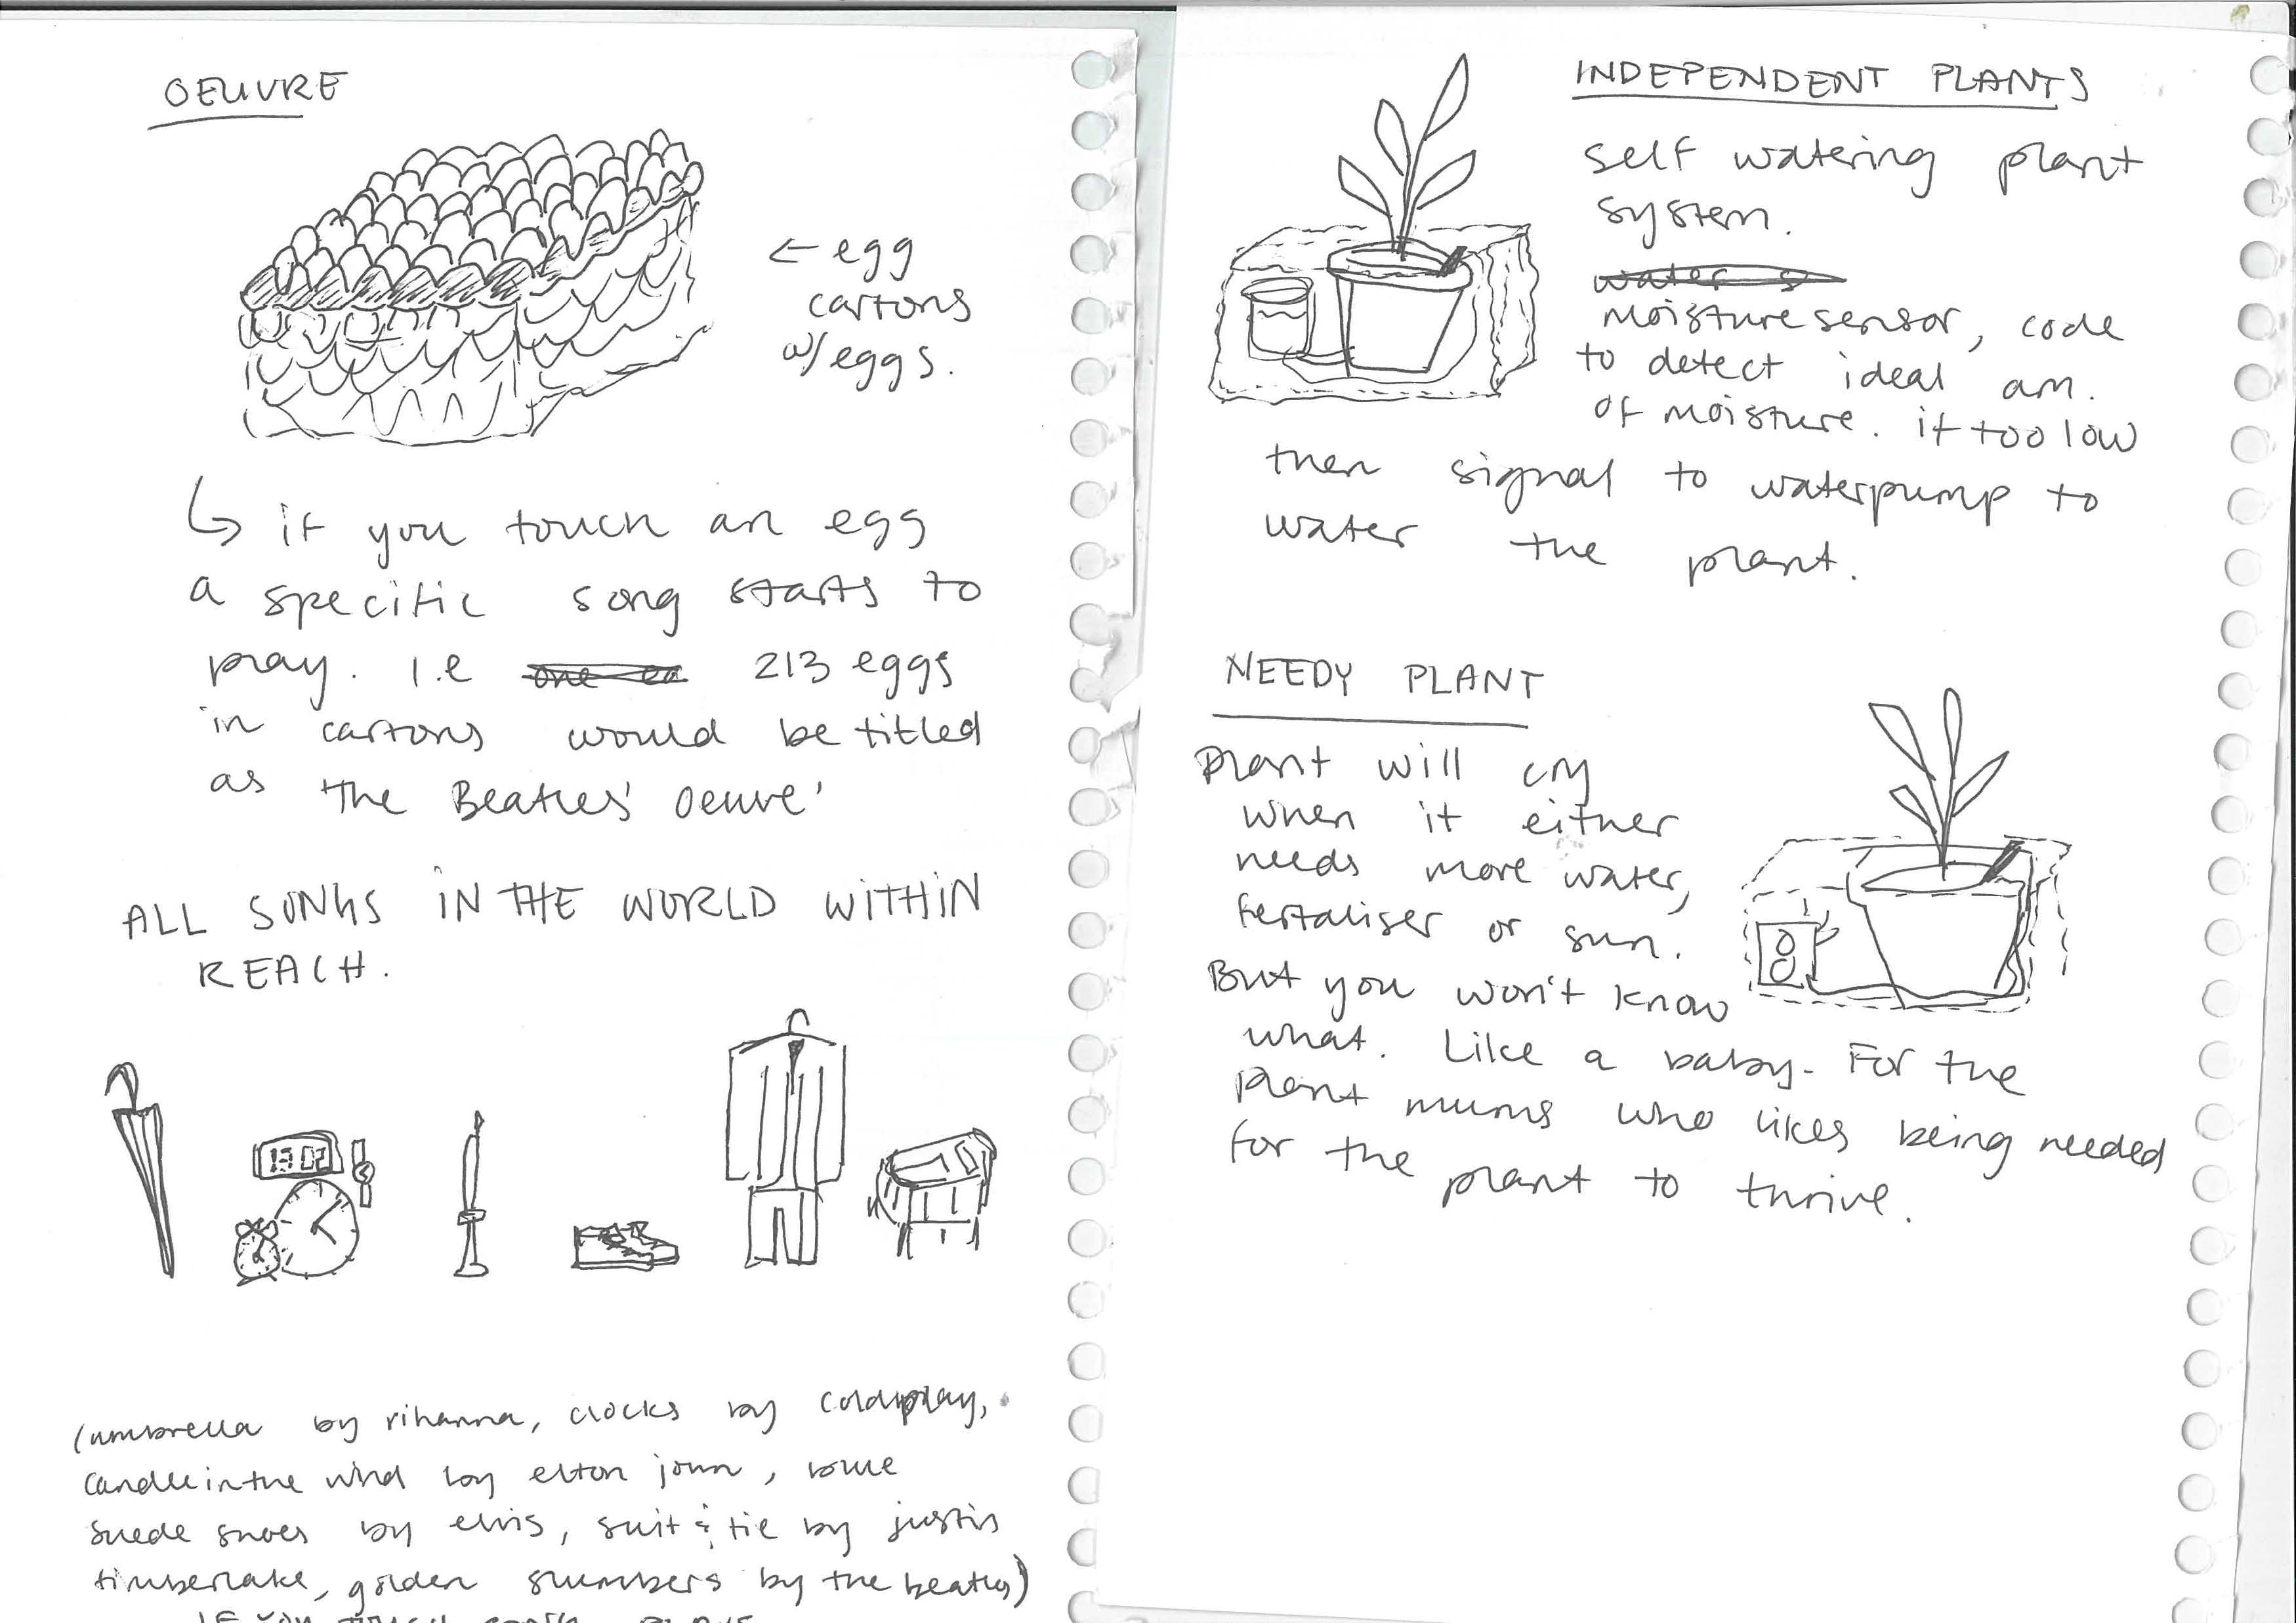 OEUVRE
← egg
cartons
w/ eggs.
↳ if you touch an egg
a specific song starts to
play. i.e 213 eggs
in cartons would be titled
as 'The Beatles' Oeuvre'
ALL SONGS IN THE WORLD WITHIN
REACH.
13 02
(umbrella by rihanna, clocks by coldplay,
candle in the wind by elton john, blue
suede shoes by elvis, suit & tie by justin
timberlake, golden slumbers by the beatles)
IF YOU TOUCH
INDEPENDENT PLANTS
self watering plant
system.
water s
moisture sensor, code
to detect ideal am.
of moisture. if too low
then signal to waterpump to
water the plant.
NEEDY PLANT
Plant will cry
when it either
needs more water,
fertaliser or sun.
But you won't know
what. Like a baby. For the
plant mums who likes being needed
for the plant to thrive.